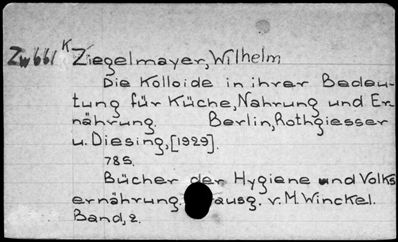 Zw661 K Ziegelmayer, Wilhelm
Die Kolloide in ihrer Bedeu-
tung für Küche, Nahrung und Er-
nährung. Berlin, Rothgiesser
u. Diesing, [1929].
78S.
Bücher der Hygiene und Volks
ernährung. v. M. Winckel.
Band, 2.